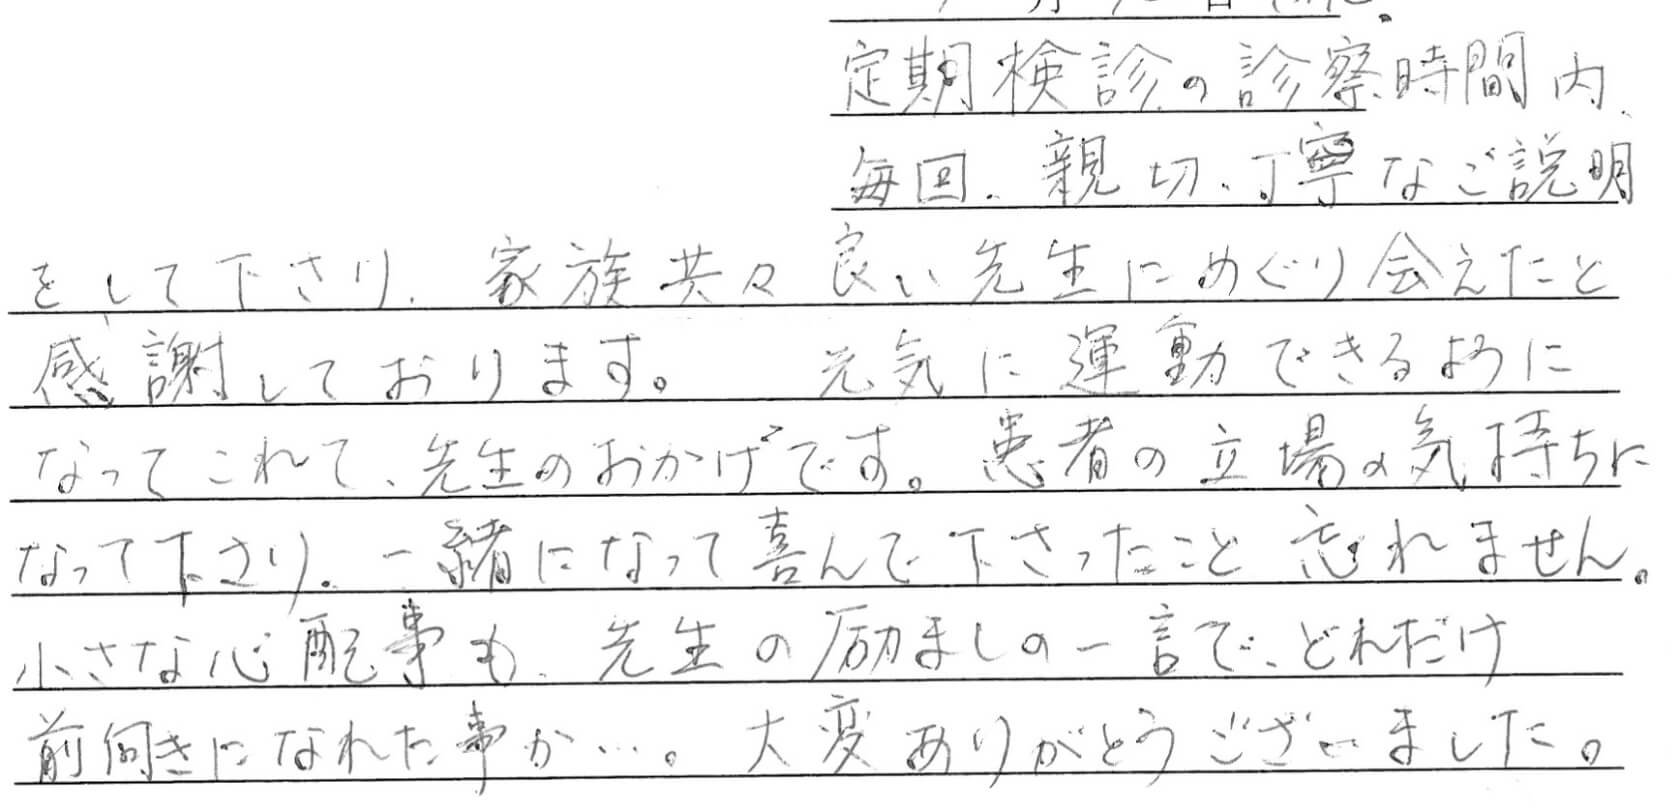 定期検診の診察時間内、
毎回、親切、丁寧なご説明
をして下さり、家族共々良い先生にめぐり会えたと
感謝しております。 元気に運動できるように
なってこれて、先生のおかげです。患者の立場の気持ちに
なって下さり、一緒になって喜んで下さったこと忘れません。
小さな心配事も、先生の励ましの一言で、どれだけ
前向きになれた事か…。大変ありがとうございました。